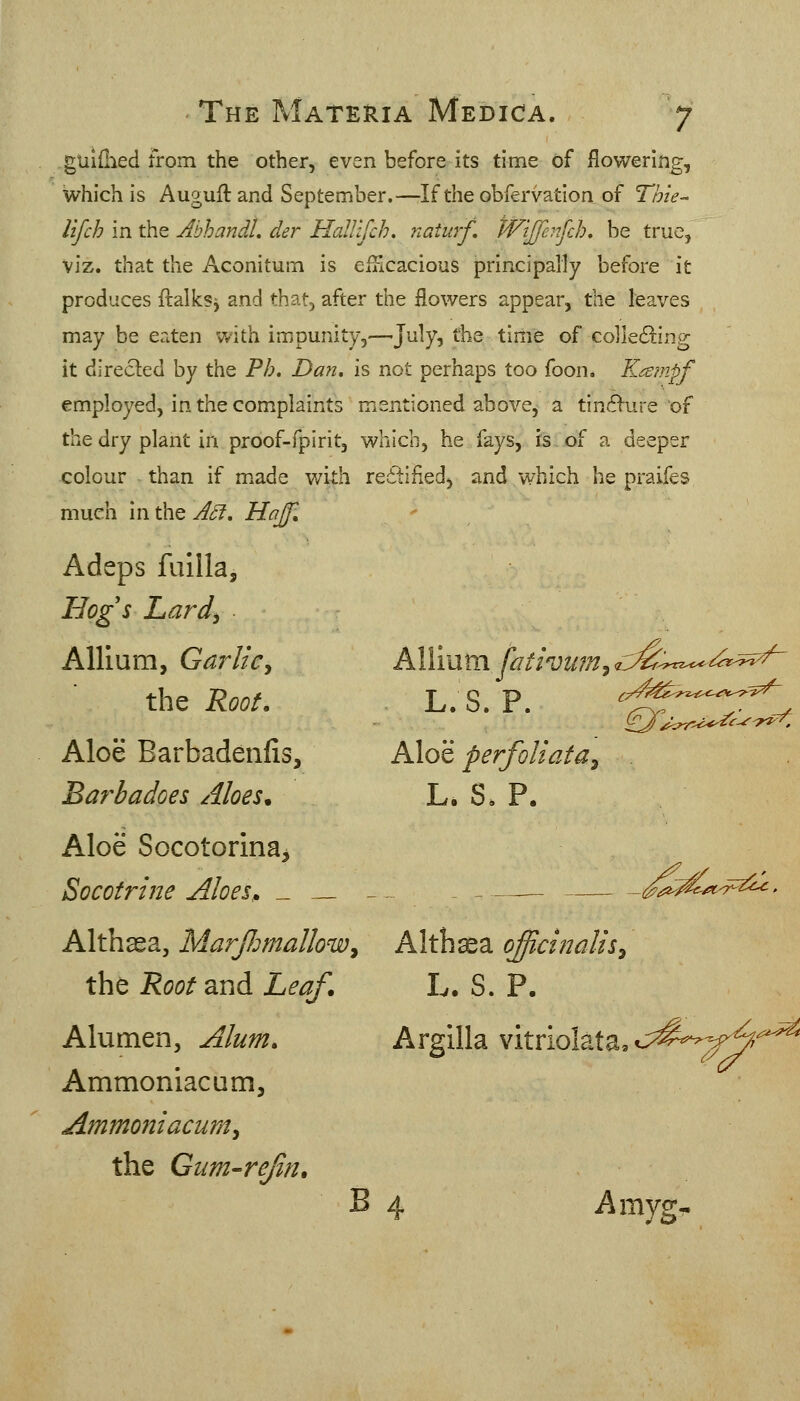 THE MATERIA MEDICA. 7
guiſhed from the other, even before its time of flowering,
which is Auguſt and September.—If the obſervation of Thie-
liſch in the Abhandl. der Halliſch. naturf. Wiſſenſch. be true,
viz. that the Aconitum is efficacious principally before it
produces ſtalks; and that, after the flowers appear, the leaves
may be eaten with impunity,—July, the time of collecting
it directed by the Ph. Dan. is not perhaps too ſoon. Kæmpf
employed, in the complaints mentioned above, a tincture of
the dry plant in proof-ſpirit, which, he ſays, is of a deeper
colour than if made with rectified, and which he praiſes
much in the Act. Haſſ.
Adeps ſuilla,
Hog's Lard,
Allium, Garlic, Allium ſativum, Stimulant
the Root. L. S. P.
Aloë Barbadenſis, Aloë perfoliata,
Barbadoes Aloes. L. S. P.
Aloë Socotorina,
Socotrine Aloes.
Althæa, Marſhmallow, Althæa officinalis,
the Root and Leaf. L. S. P.
Alumen, Alum. Argilla vitriolata,
Ammoniacum,
Ammoniacum,
the Gum-reſin.
B 4 Amyg-